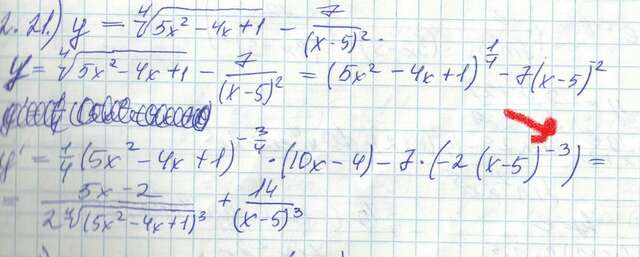 2.21.) y = ∜(5x² − 4x + 1) − 7/(x−5)².
y = ∜(5x² − 4x + 1) − 7/(x−5)² = (5x² − 4x + 1)^(1/4) − 7(x−5)^(−2)
y' = 1/4 (5x² − 4x + 1)^(−3/4) · (10x − 4) − 7 · (−2 (x−5)^(−3)) =
= (5x − 2)/(2∜(5x² − 4x + 1)³) + 14/(x−5)³